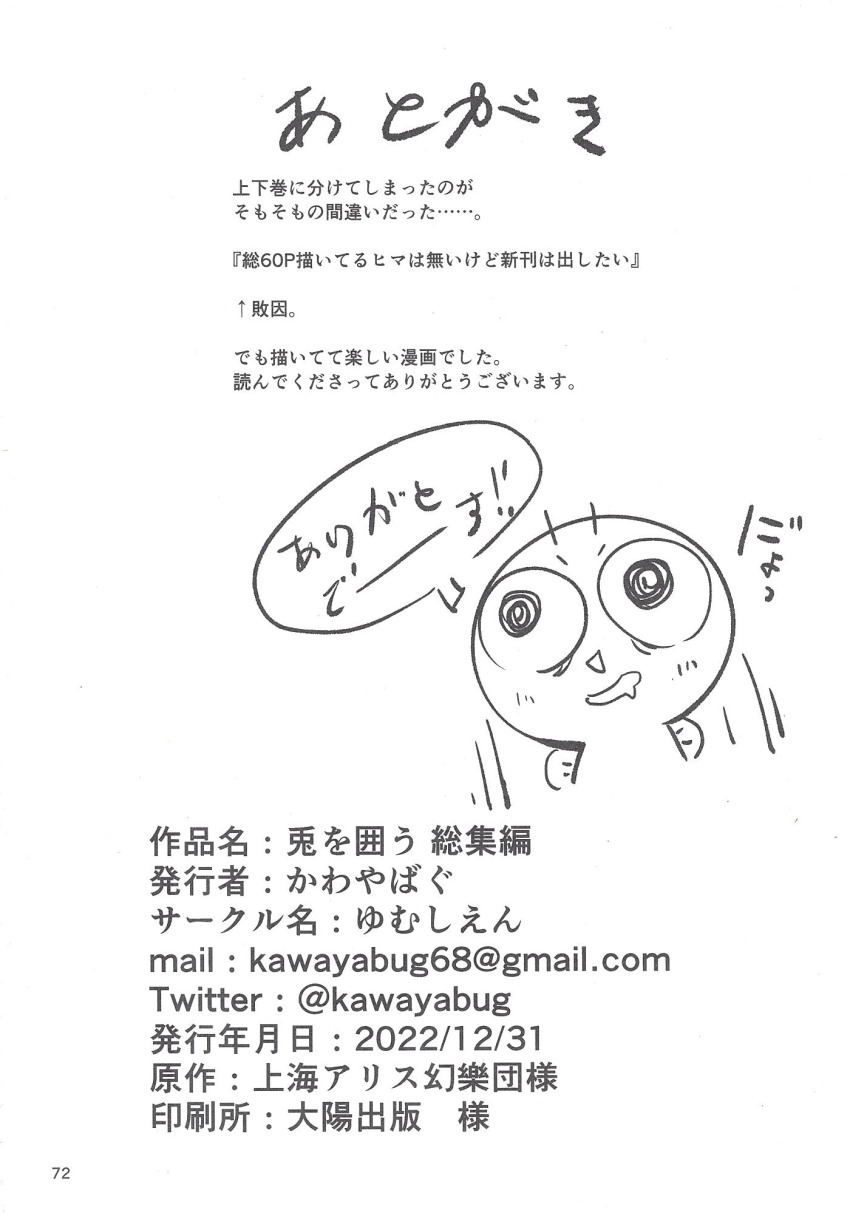 あとがき
上下巻に分けてしまったのが
そもそもの間違いだった……。
『総60P描いてるヒマは無いけど新刊は出したい』
↑敗因。
でも描いてて楽しい漫画でした。
読んでくださってありがとうございます。
ありがと
でーす!!
じょっ
作品名：兎を囲う 総集編
発行者：かわやばぐ
サークル名：ゆむしえん
mail：kawayabug68@gmail.com
Twitter：@kawayabug
発行年月日：2022/12/31
原作：上海アリス幻樂団様
印刷所：大陽出版　様
72